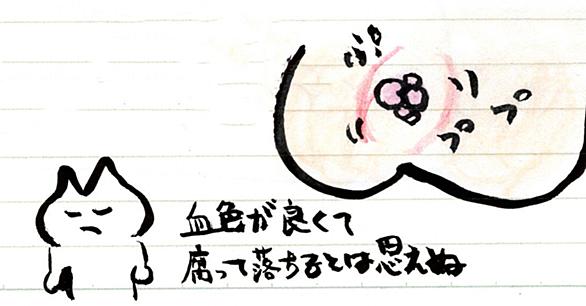 ぷ!
プ
プ
血色が良くて
腐って落ちるとは思えぬ